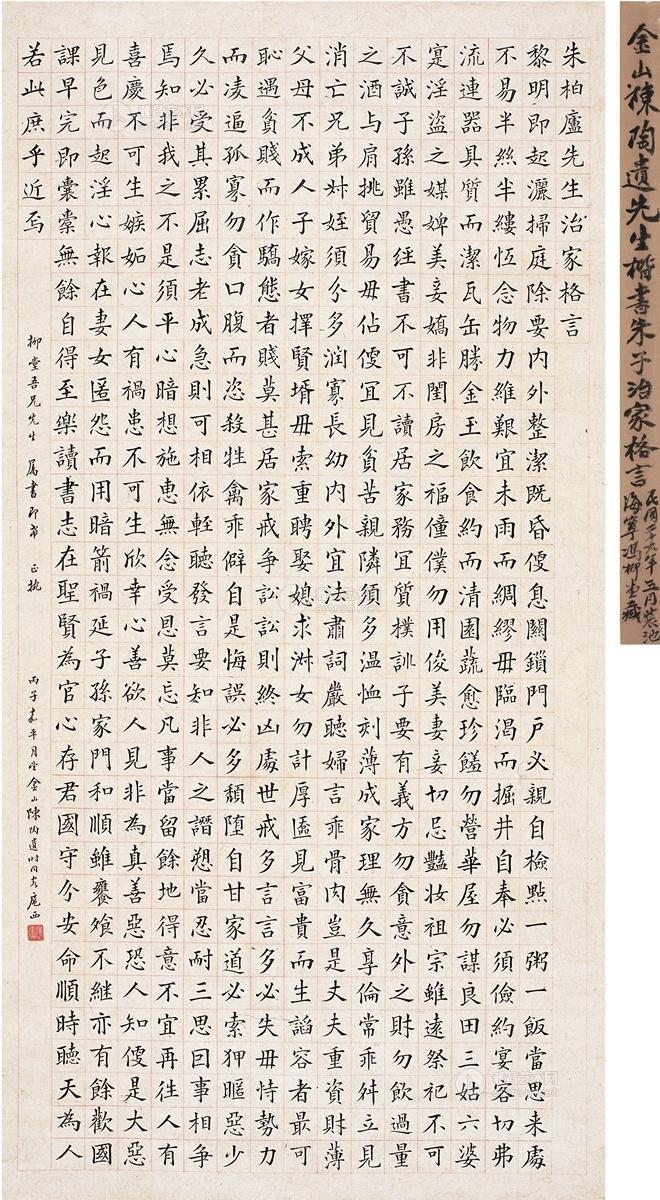 金山陳陶遺先生楷書朱子治家格言
民国二十六年五月裝池
海寧馮柳堂藏
朱柏廬先生治家格言
黎明即起灑掃庭除要内外整潔既昏便息關鎖門户必親自檢點一粥一飯當思来處
不易半絲半縷恆念物力維艱宜未雨而綢繆毋臨渴而掘井自奉必須儉約宴客切弗
流連器具質而潔瓦缶勝金玉飲食約而清園蔬愈珍饈勿營華屋勿謀良田三姑六婆
寔淫盜之媒婢美妾嬌非閨房之福僮僕勿用俊美妻妾切忌艷妝祖宗雖遠祭祀不可
不誠子孫雖愚經書不可不讀居家務宜質樸訓子要有義方勿貪意外之財勿飲過量
之酒与肩挑貿易毋佔便宜見貧苦親隣須多温恤刻薄成家理無久享倫常乖舛立見
消亡兄弟叔姪須分多润寡長幼内外宜法肅詞嚴聽婦言乖骨肉豈是丈夫重資財薄
父母不成人子嫁女擇賢壻毋索重聘娶媳求淑女勿計厚匳見富貴而生諂容者最可
恥遇貧賤而作驕態者賤莫甚居家戒争訟訟則終凶處世戒多言言多必失毋恃勢力
而凌逼孤寡勿貪口腹而恣殺牲禽乖僻自是悔誤必多頽堕自甘家道必索狎暱惡少
久必受其累屈志老成急則可相依輕聽發言要知非人之譖愬當忍耐三思曰事相争
焉知非我之不是須平心暗想施惠無念受恩莫忘凡事當留餘地得意不宜再往人有
喜慶不可生嫉妬心人有禍患不可生欣幸心善欲人見非為真善惡恐人知便是大惡
見色而起淫心報在妻女匿怨而用暗箭禍延子孫家門和順雖饔飧不繼亦有餘歡國
課早完即囊橐無餘自得至樂讀書志在聖賢為官心存君國守分安命順時聽天為人
若此庶乎近焉
柳堂吾兄先生 属書即希 正捥 丙子嘉平月望金山陳陶遺時同客扈西